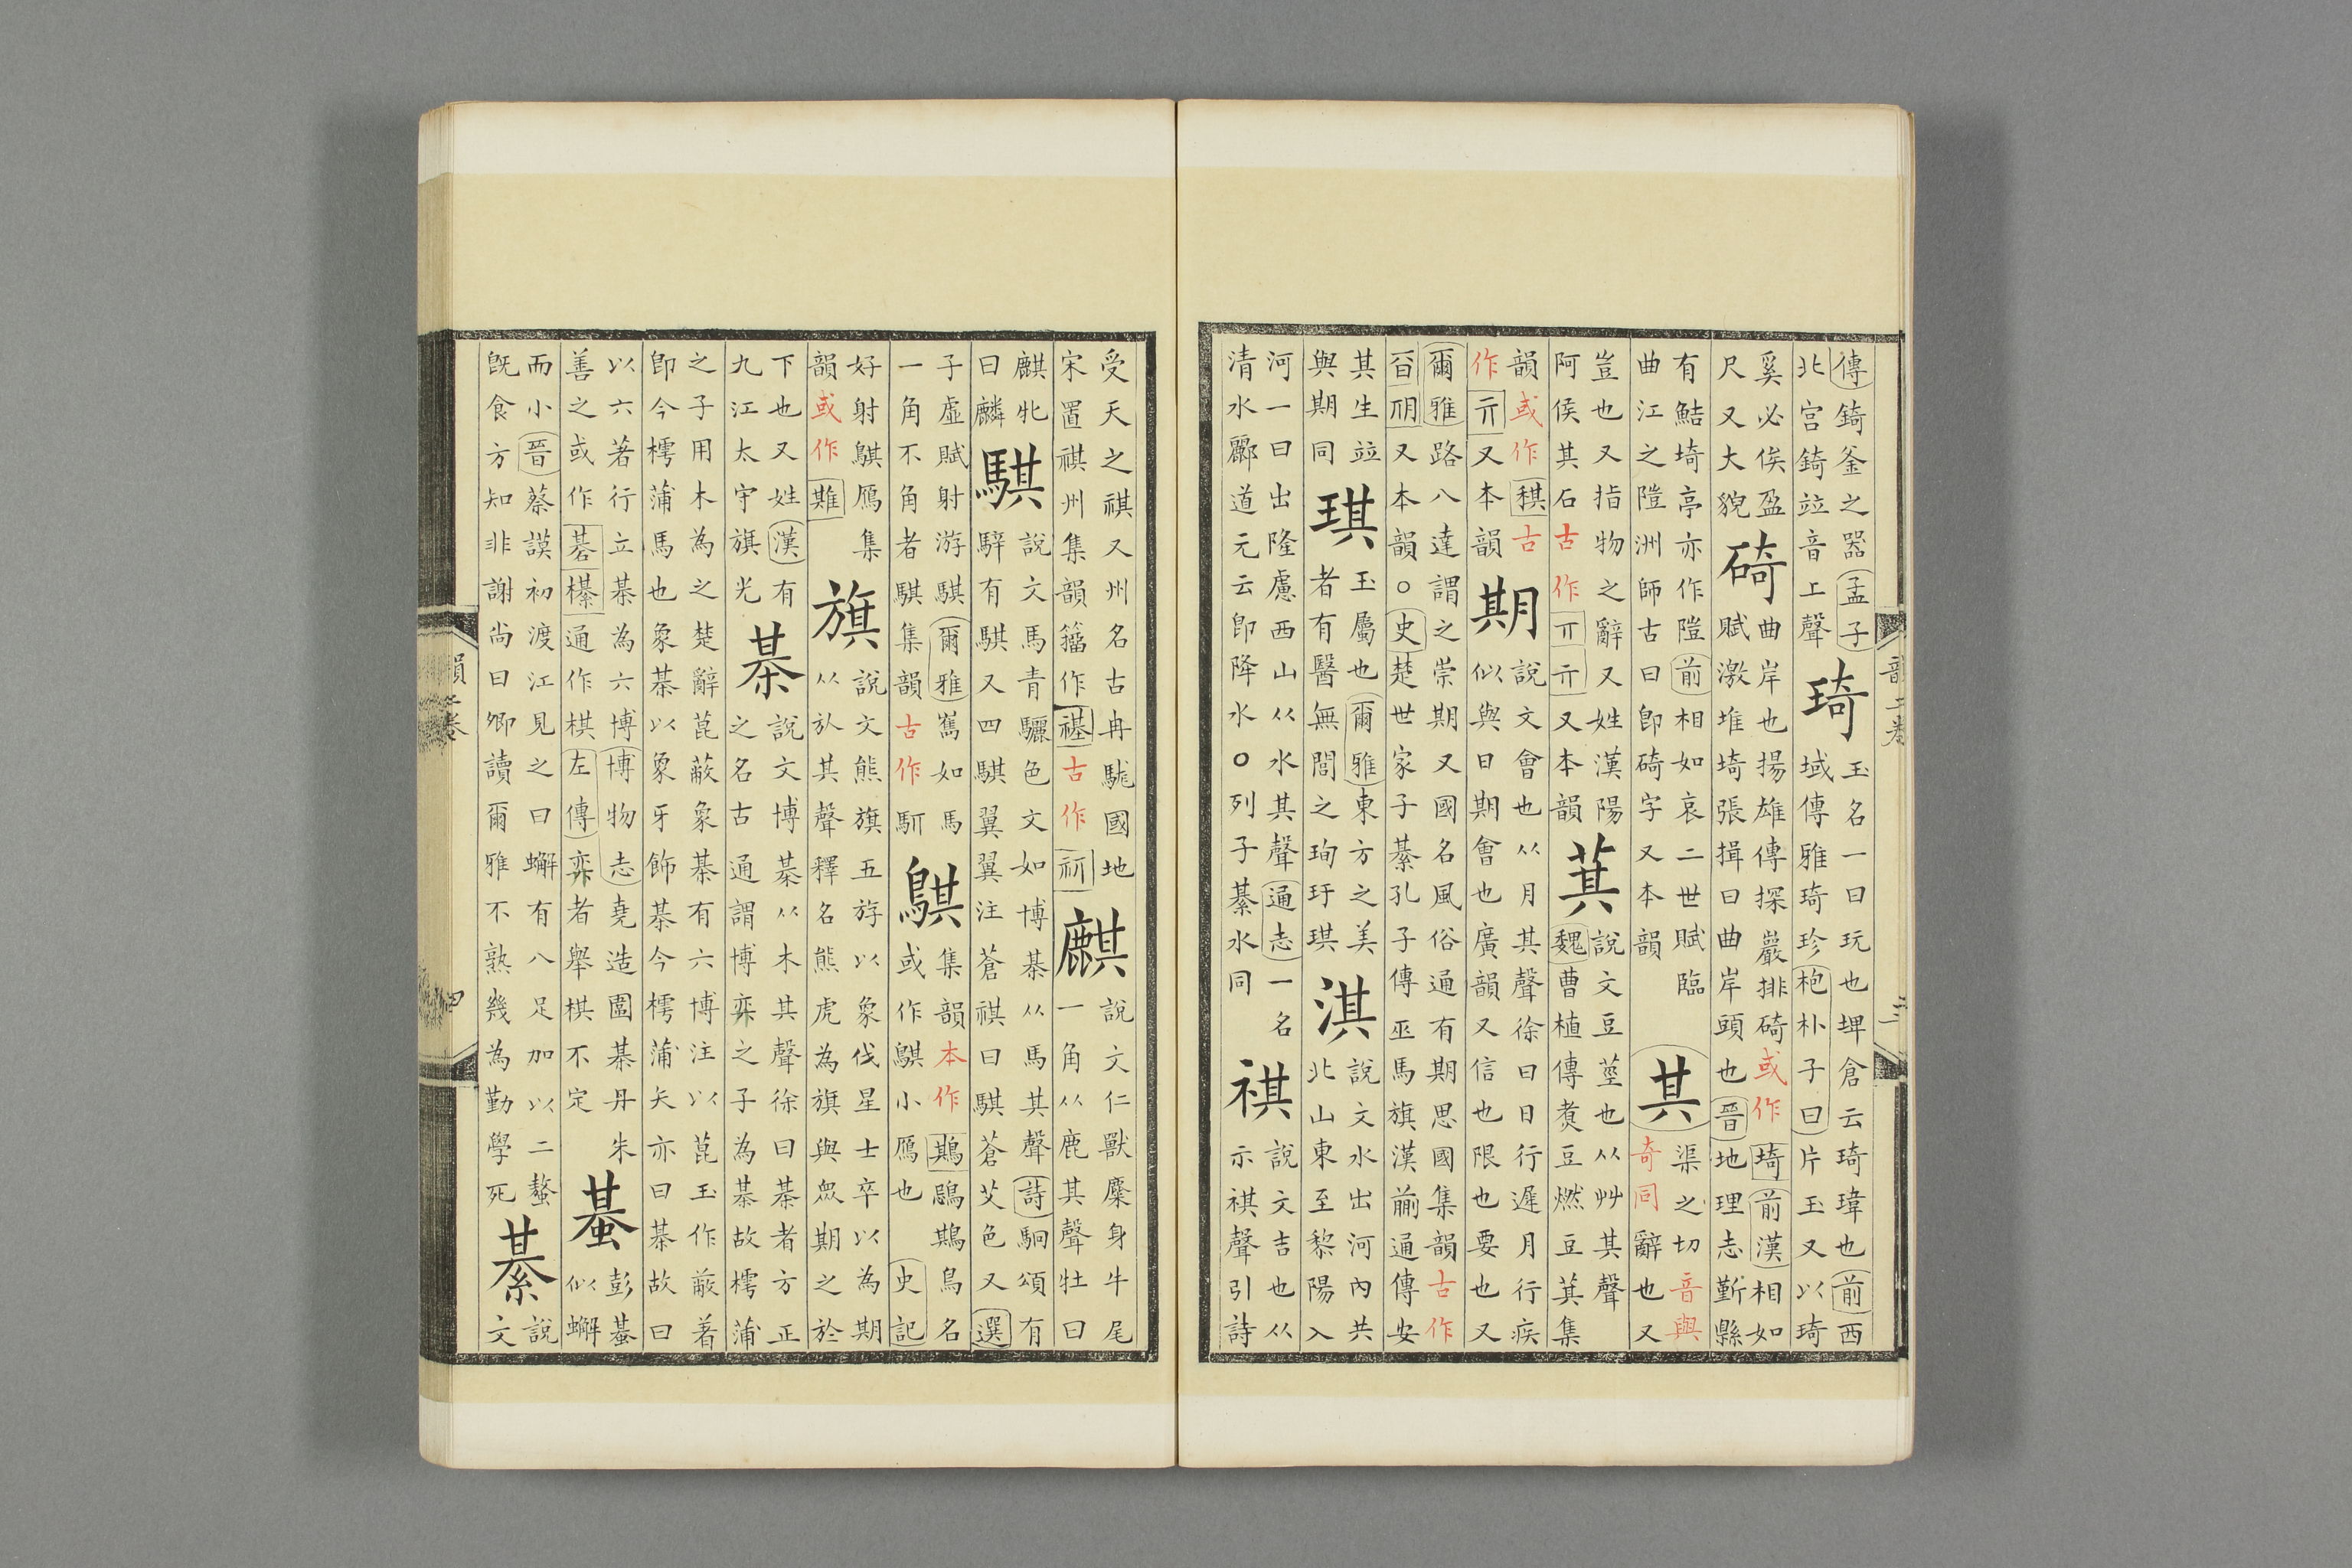 傳錡釜之器孟子
北宮錡竝音上聲
琦
玉名一曰玩也埤倉云琦瑋也前西
域傳雅琦珍枹朴子曰片玉又以琦
奚必俟盈
尺又大貌
碕
曲岸也揚雄傳探巖排碕或作埼前漢相如
賦激堆埼張揖曰曲岸頭也晉地理志鄞縣
有鮚埼亭亦作隑前相如哀二世賦臨
曲江之隑洲師古曰卽碕字又本韻
其
渠之切音與
奇同辭也又
豈也又指物之辭又姓漢陽
阿侯其石古作丌亓又本韻
萁
說文豆莖也从艸其聲
魏曹植傳煑豆燃豆萁集
韻或作稘古
作亓又本韻
期
說文會也从月其聲徐曰日行遲月行疾
似與日期會也廣韻又信也限也要也又
爾雅路八達謂之崇期又國名風俗通有期思國集韻古作
又本韻○史楚世家子綦孔子傳巫馬旗漢蒯通傳安
其生竝
與期同
琪
玉屬也爾雅東方之美
者有醫無閭之珣玗琪
淇
說文水出河內共
北山東至黎陽入
河一曰出隆慮西山从水其聲通志一名
清水酈道元云卽降水○列子綦水同
祺
說文吉也从
示祺聲引詩
受天之祺又州名古冉駹國地
宋置祺州集韻籀作禥古作
麒
說文仁獸麋身牛尾
一角从鹿其聲牡曰
麒牝
曰麟
騏
說文馬青驪色文如博棊从馬其聲詩駉頌有
騂有騏又四騏翼翼注蒼祺曰騏蒼艾色又選
子虛賦射游騏爾雅巂如馬
一角不角者騏集韻古作
鶀
集韻本作鵋鶀鳥名
或作鶀小鴈也史記
好射鶀鴈集
韻或作
旗
說文熊旗五斿以象伐星士卒以為期
从㫃其聲釋名熊虎為旗與眾期之於
下也又姓漢有
九江太守旗光
棊
說文博棊从木其聲徐曰棊者方正
之名古通謂博弈之子為棊故樗蒲
之子用木為之楚辭菎蔽象棊有六博注以菎玉作蔽著
卽今樗蒲馬也象棊以象牙飾棊今樗蒲矢亦曰棊故曰
以六著行立棊為六博博物志堯造圍棊丹朱
善之或作碁櫀通作棋左傳弈者舉棋不定
蜝
彭蜝
似蠏
而小晉蔡謨初渡江見之曰蠏有八足加以二螯
旣食方知非謝尚曰卿讀爾雅不熟幾為勤學死
綦
說
文